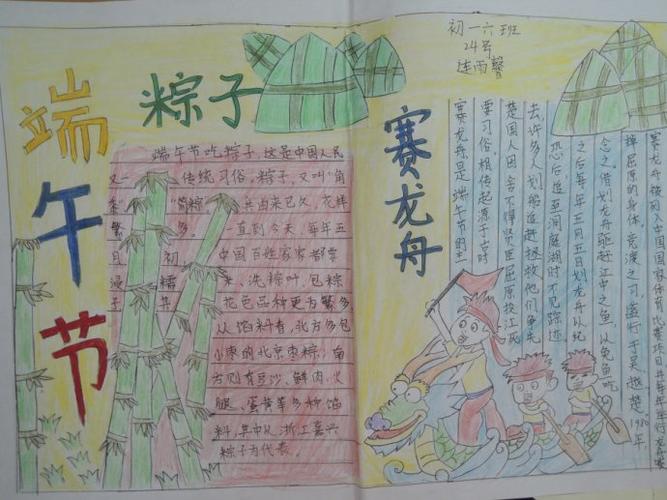 端午节
粽子
端午节吃粽子,这是中国人民
又一传统习俗,粽子,又叫"角
黍""筒粽",其由来已久,花样
繁多。一直到今天,每年五
月初,中国百姓家家都要
浸糯米、洗粽叶、包粽
子,其花色品种更为繁多。
从馅料看,北方多包
小枣的北京枣粽;南
方则有豆沙、鲜肉、火
腿、蛋黄等多种馅
料,其中以浙江嘉兴
粽子为代表。
初一六班
24号
连雨馨
赛龙舟
赛龙舟,是端午节的主
要习俗。相传起源于古时
楚国人因舍不得贤臣屈原投江死
去,许多人划船追赶拯救他们争先
恐后,追至洞庭湖时不见踪迹
之后每年五月五日划龙舟以纪
念之。借划龙舟驱赶江中之鱼,以免鱼吃
掉屈原的身体。竞渡之习,盛行于吴、越、楚1980年
赛龙舟被列入中国国家体育比赛项目,并每年举行